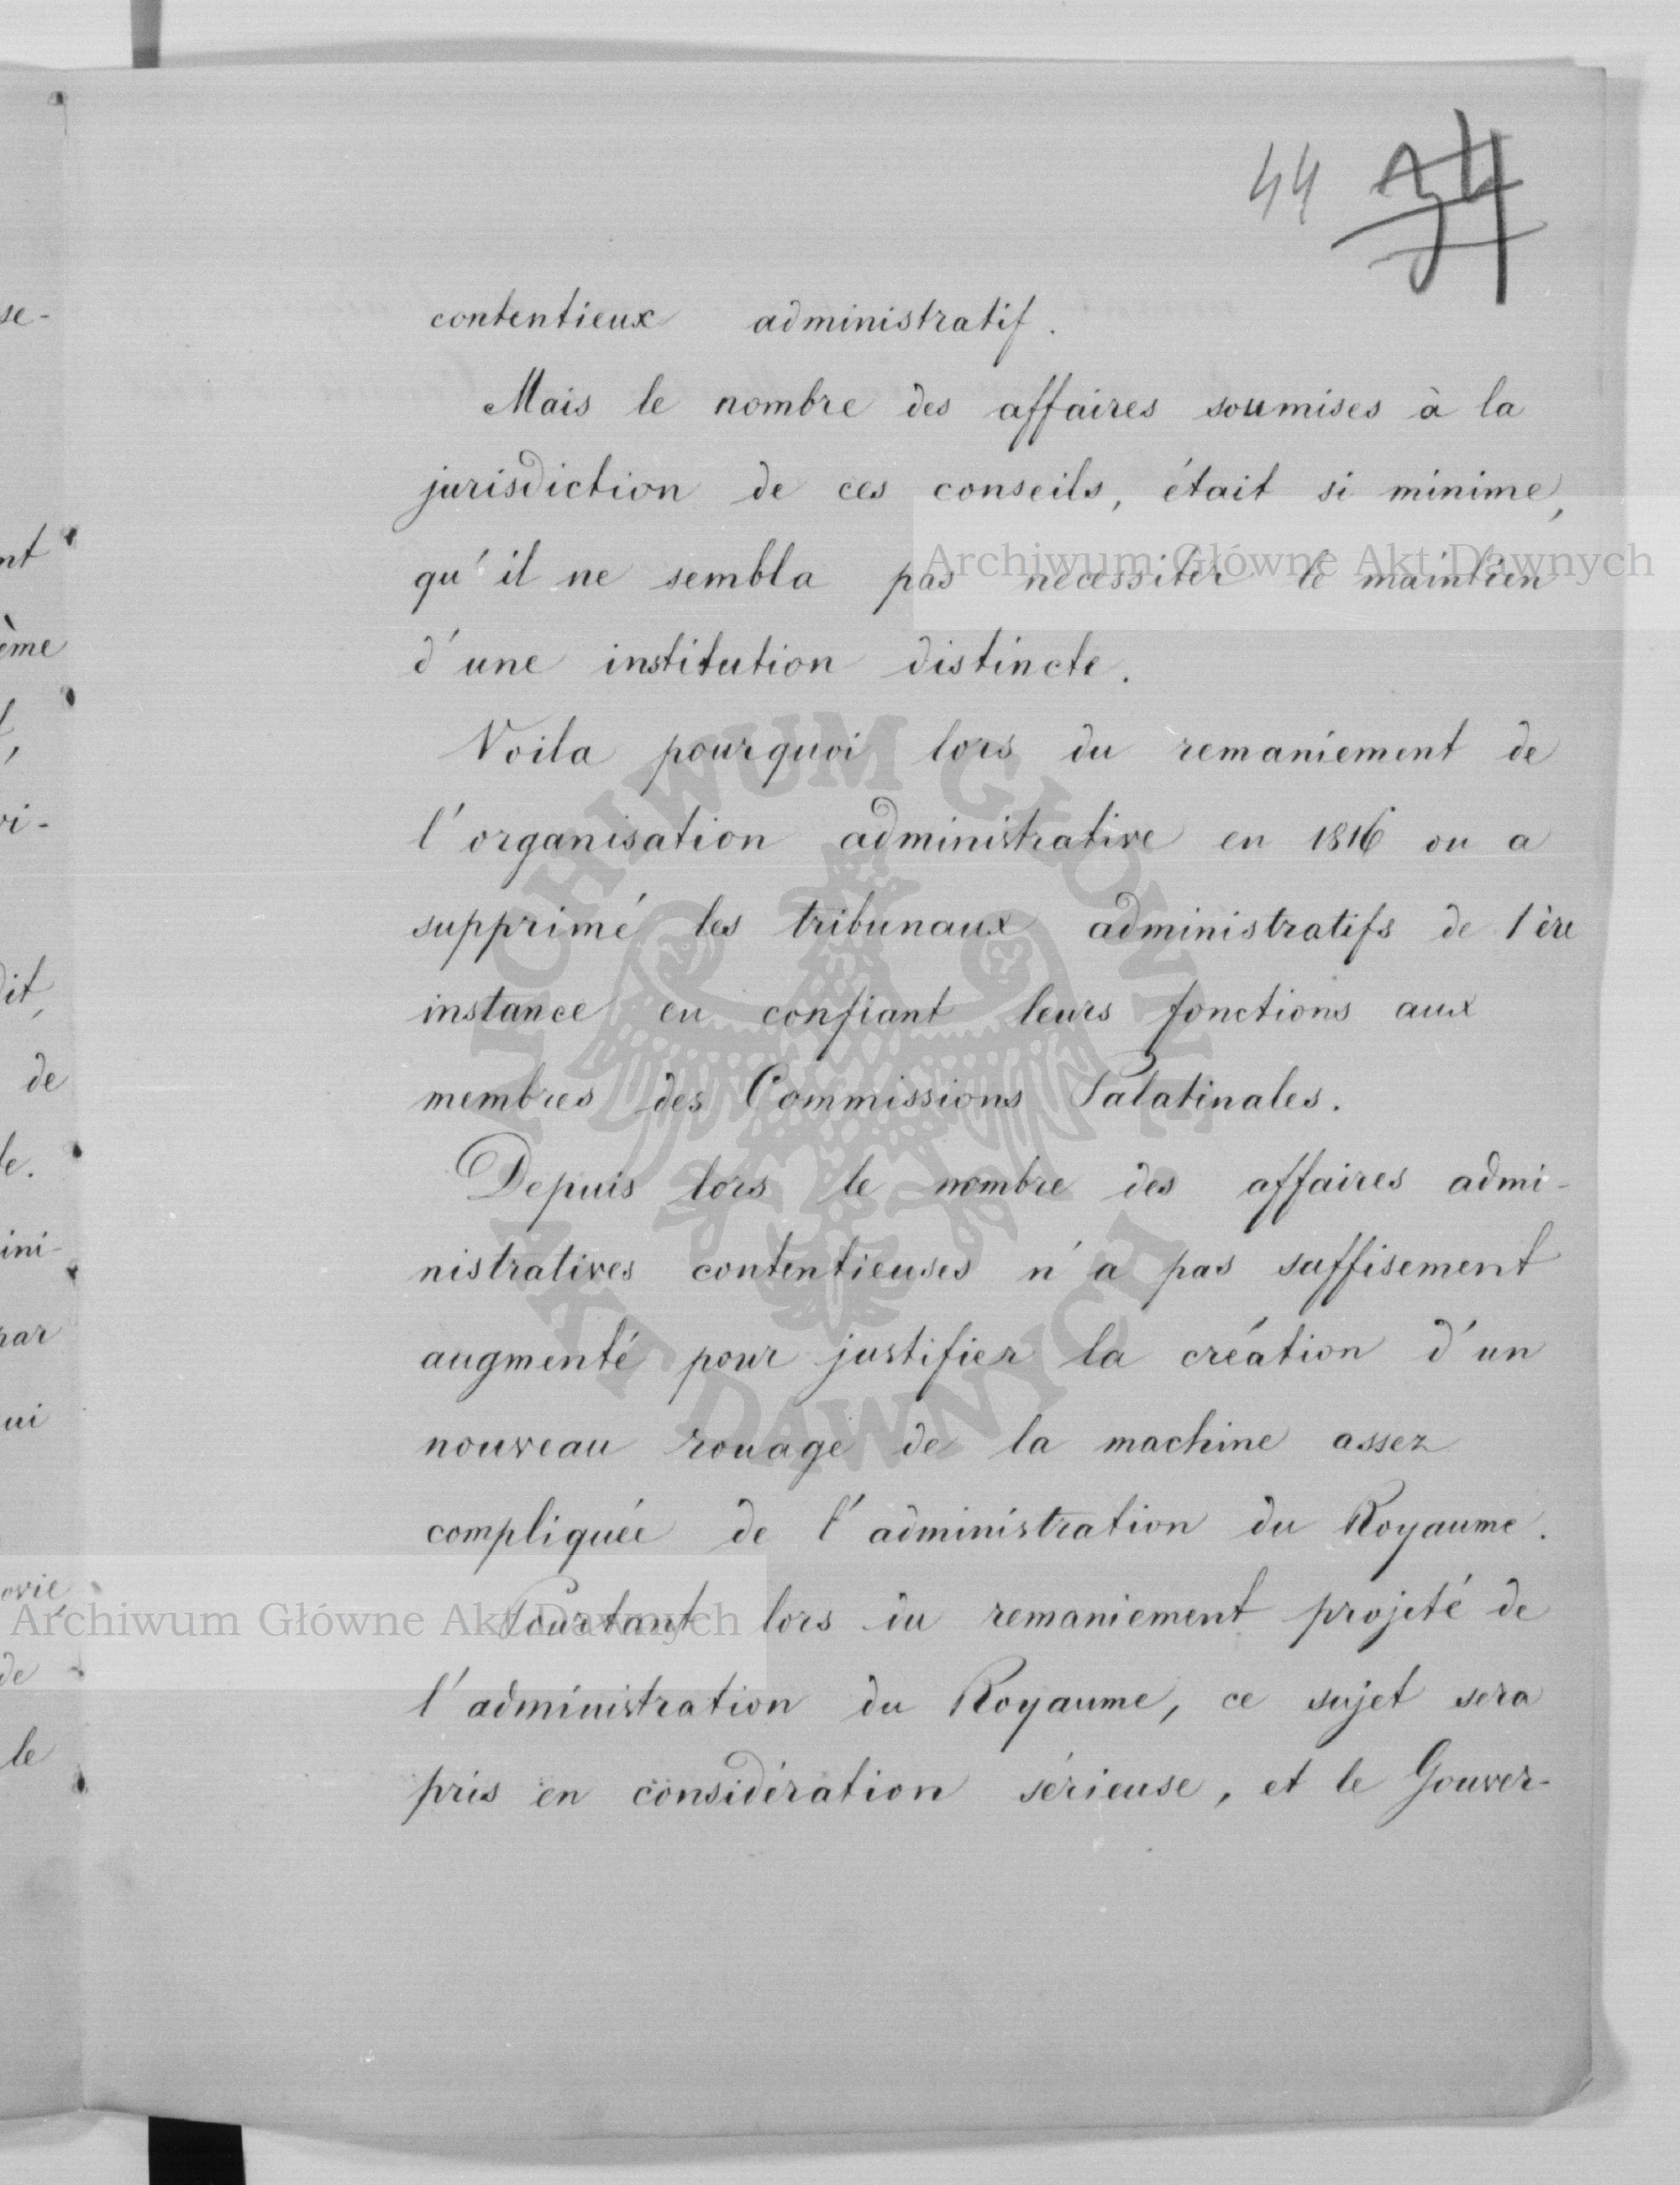 44
contentieux administratif.
Mais le nombre des affaires soumises à la
jurisdiction de ces conseils, était si minime,
qu'il ne sembla pas nécessiter le maintien
d'une institution distincte.
Voila pourquoi lors du remaniement de
l'organisation administrative en 1816 on a
supprimé les tribunaux administratifs de 1ère
instance en confiant leurs fonctions aux
membres des Commissions Palatinales.
Depuis lors le nombre des affaires admi-
nistratives contentieuses n'a pas suffisement
augmenté pour justifier la création d'un
nouveau rouage de la machine assez
compliquée de l'administration du Royaume.
Pourtant lors du remaniement projeté de
l'administration du Royaume, ce sujet sera
pris en considération sérieuse, et le Gouver-
Archiwum Główne Akt Dawnych
ARCHIWUM GŁÓWNE
AKT DAWNYCH
Archiwum Główne Akt Dawnych
se-
nt
ème
vi-
dit,
de
le.
ini-
par
ui
ovie,
de
le